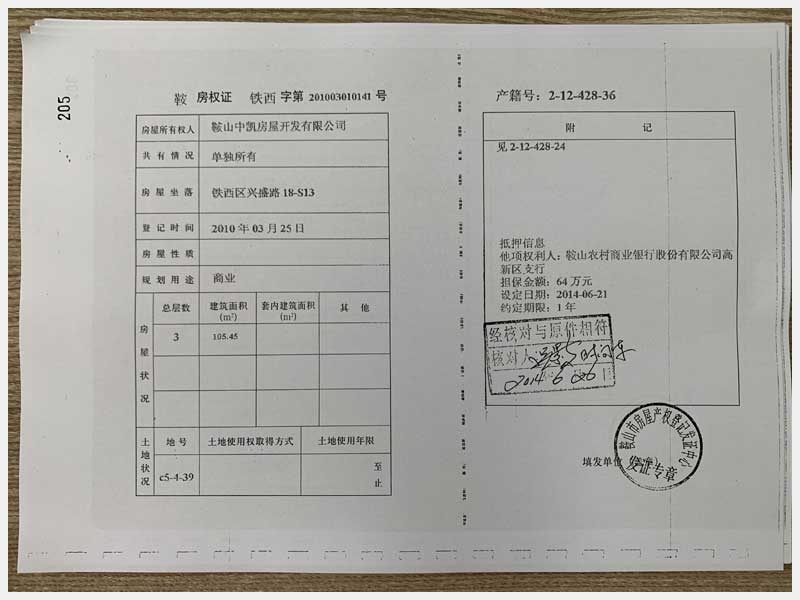 205
鞍 房权证 铁西 字第 201003010141 号
房屋所有权人 鞍山中凯房屋开发有限公司
共有情况 单独所有
房屋坐落 铁西区兴盛路 18-S13
登记时间 2010 年 03 月 25 日
房屋性质
规划用途 商业
房屋状况
总层数 建筑面积(m²) 套内建筑面积(m²) 其他
3 105.45
土地状况
地号 土地使用权取得方式 土地使用年限
c5-4-39 至
止
产籍号：2-12-428-36
附 记
见 2-12-428-24
抵押信息
他项权利人：鞍山农村商业银行股份有限公司高
新区支行
担保金额：64 万元
设定日期：2014-06-21
约定期限：1 年
经核对与原件相符
核对人
2014 6 26 日
鞍山市房屋产权登记发证中心
填发单位
发证专章